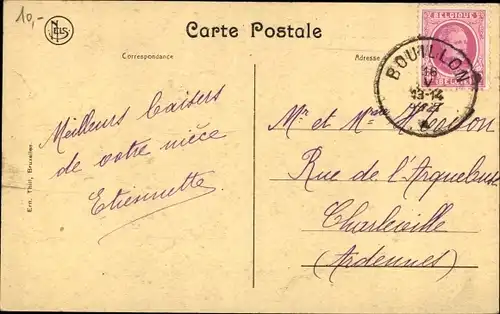 10,-
NELS
Carte Postale
Correspondance
Adresse
BELGIQUE
BOUILLON
16
V
13-14
Meilleurs baisers
de votre nièce
Etiennette
Mr et Mme
Rue de l'Arquebuse
Charleville
(Ardennes)
Ern. Thill, Bruxelles